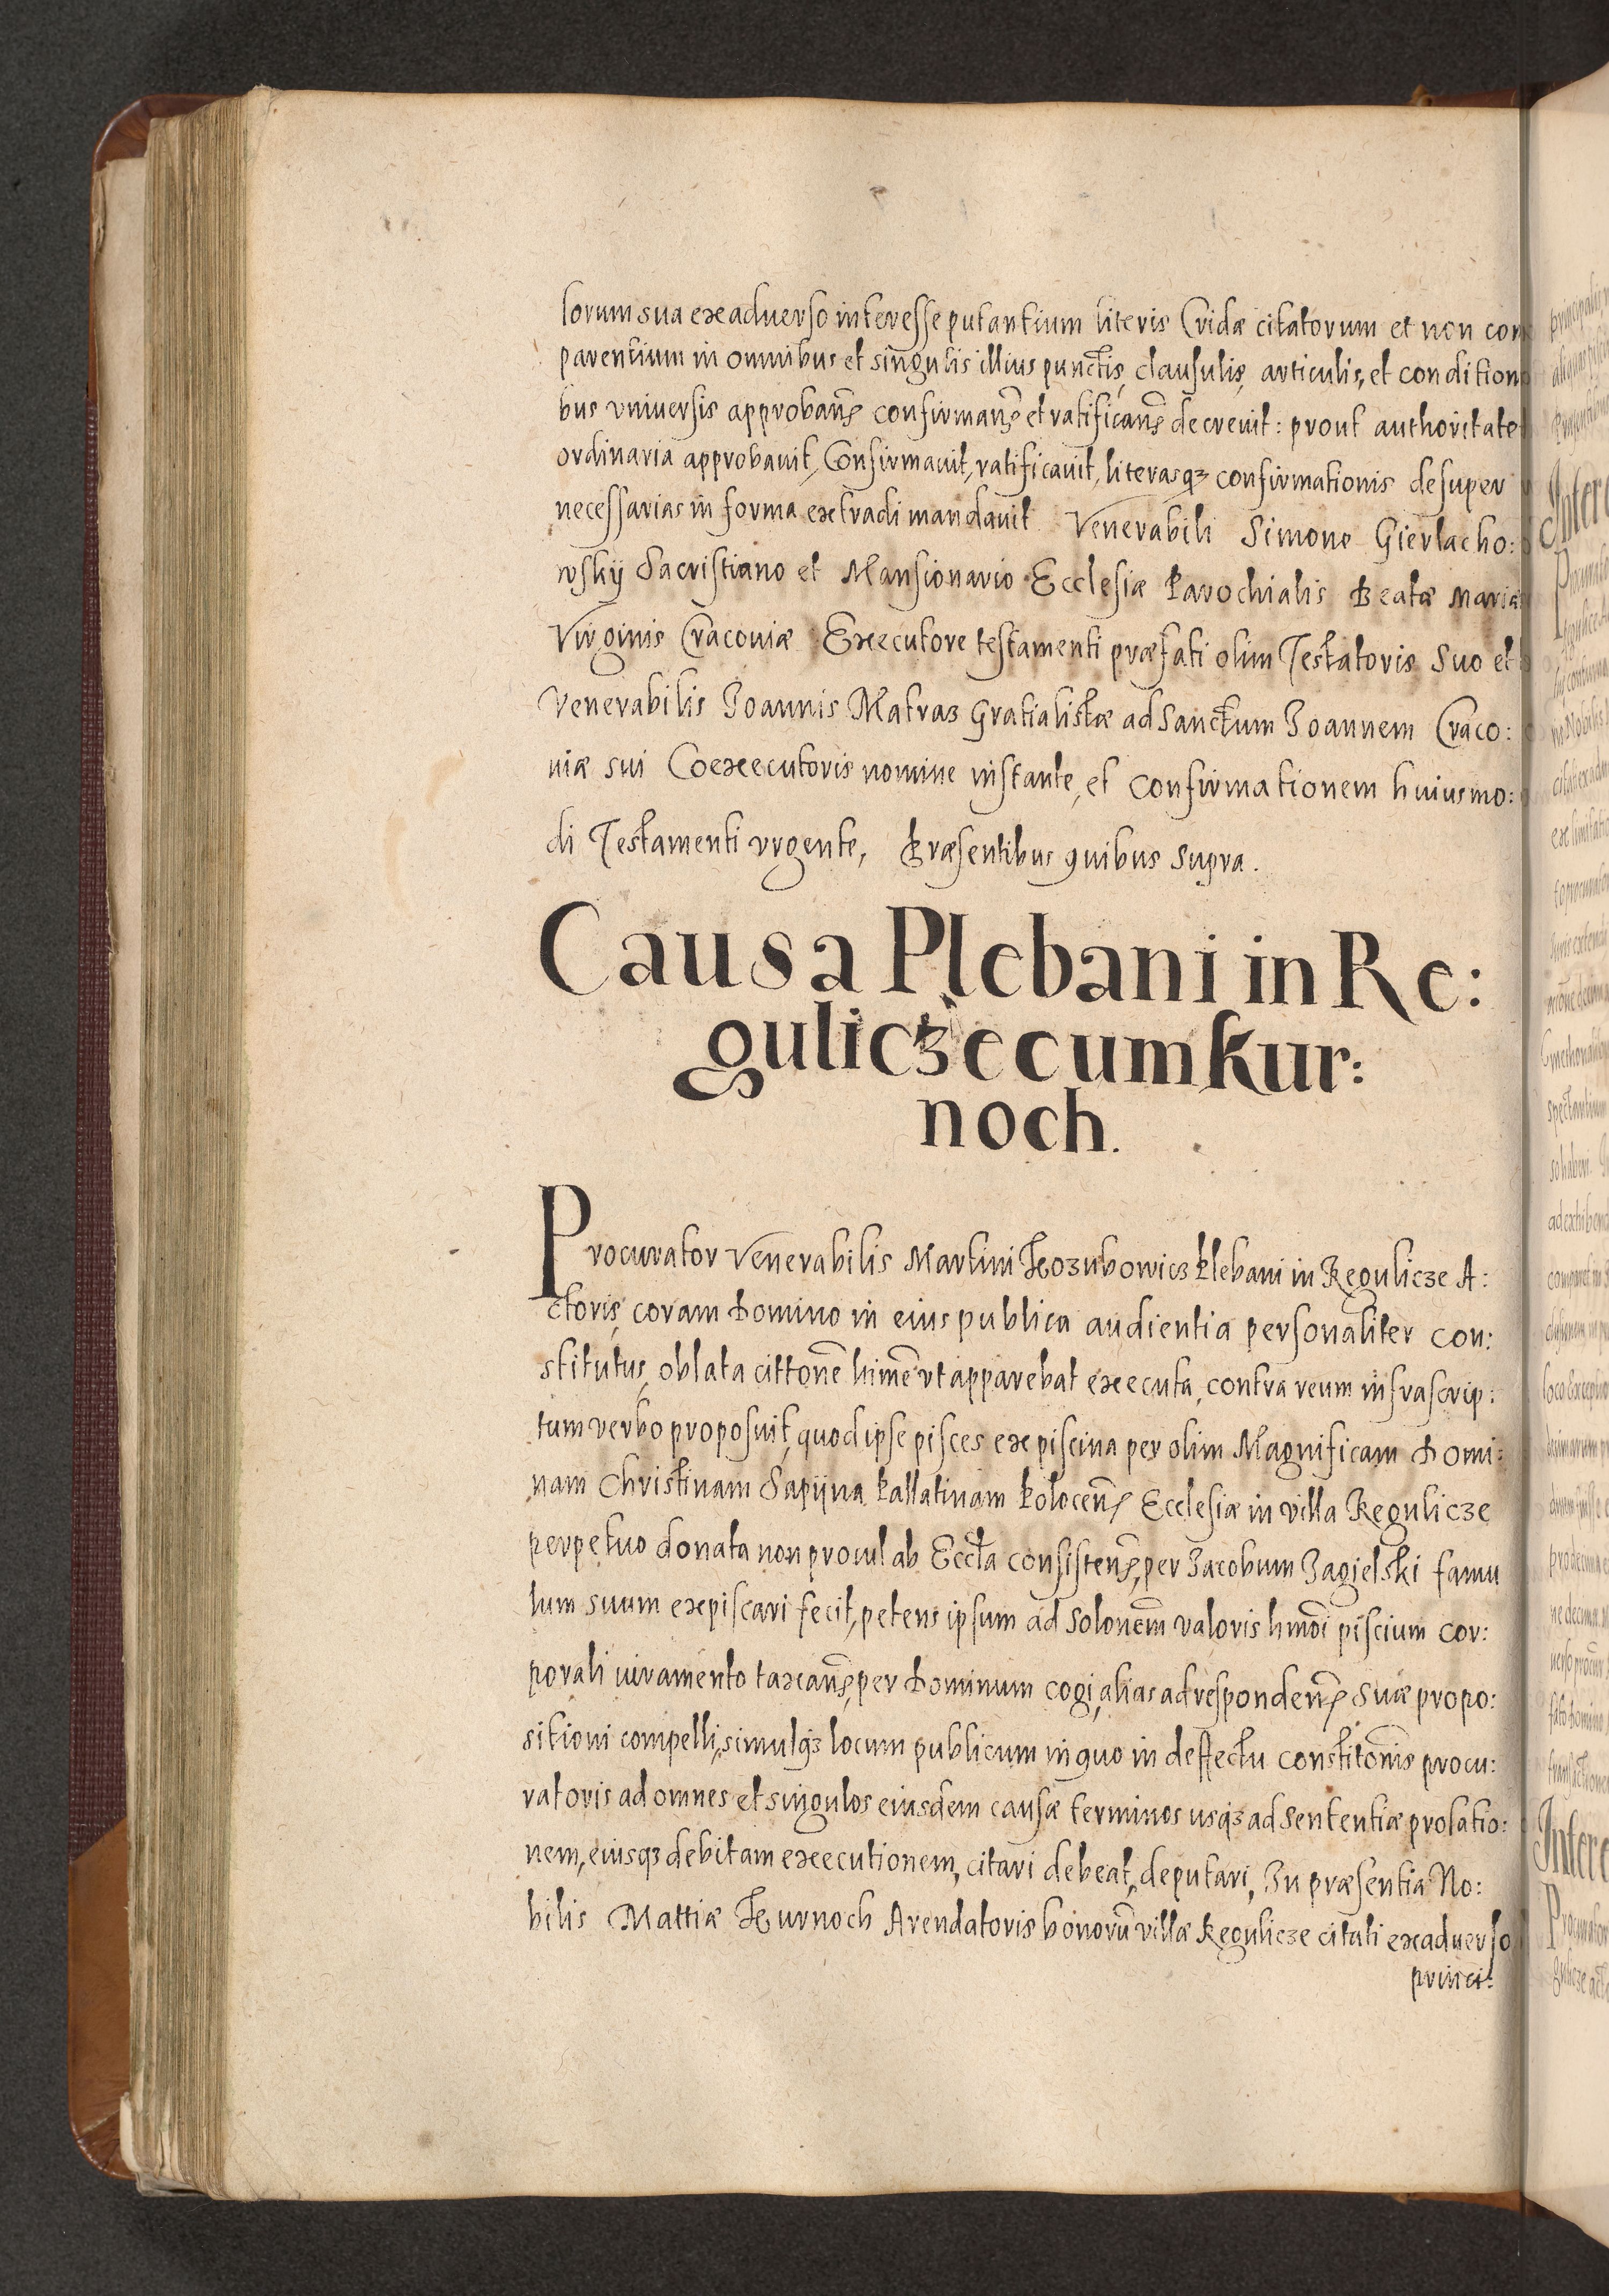 lorum sua exaduerso interesse putantium literis Cridæ citatorum et non com
parentium in omnibus et singulis illius punctis, clausulis, articulis, et condition
bus vniuersis approbanđ confirmanđ et ratificanđ decreuit: prout authoritate
ordinaria approbauit, Confirmauit, ratificauit, literasqꝫ confirmationis desuper
necessarias in forma extradi mandauit Venerabili Simone Gierlacho:
wskÿ Sacristiano et Mansionario Ecclesiæ Parochialis Beatæ Mariæ
Virginis Cracouiæ Executore testamenti præfati olim Testatoris Suo et
Venerabilis Joannis Matras Gratialistæ ad Sanctum Joannem Craco:
uiæ sui Coexecutoris nomine instante, et Confirmationem huiusmo:
di Testamenti vrgente, Præsentibus quibus Supra.
Causa Plebani in Re:
guliczecum kur:
noch.
Procurator Venerabilis Martini Kozubowicz Plebani in Regulicze A:
ctoris, coram Domino in eius publica audientia personaliter con:
stitutus, oblata cittonē himē vt apparebat executa, contra reum infrascrip:
tum verbo proposuit, quod ipse pisces ex piscina per olim Magnificam Domi:
nam Christinam Sapijna Pallatinam Polocenſ Ecclesiæ in villa Regulicze
perpetuo donata non procul ab Eccła consistenſ, per Jacobum Jagielski famu
lum suum expiscari fecit, petens ipsum ad Solonem̄ valoris hmōi piscium cor:
porali iuramento taxanđ, per Dominum cogi, alias ad respondenđ Suæ propo:
sitioni compelli, simulqꝫ locum publicum in quo in deffectu constitonīs procu:
ratoris ad omnes et singulos eiusdem causæ terminos usqꝫ ad Sententiæ prolatio:
nem, eiusqꝫ debitam executionem, citari debeat, deputari, In præsentia No:
bilis Mattiæ Kurnoch Arendatoris bonorū villæ Regulicze citati exaduerso
princi: